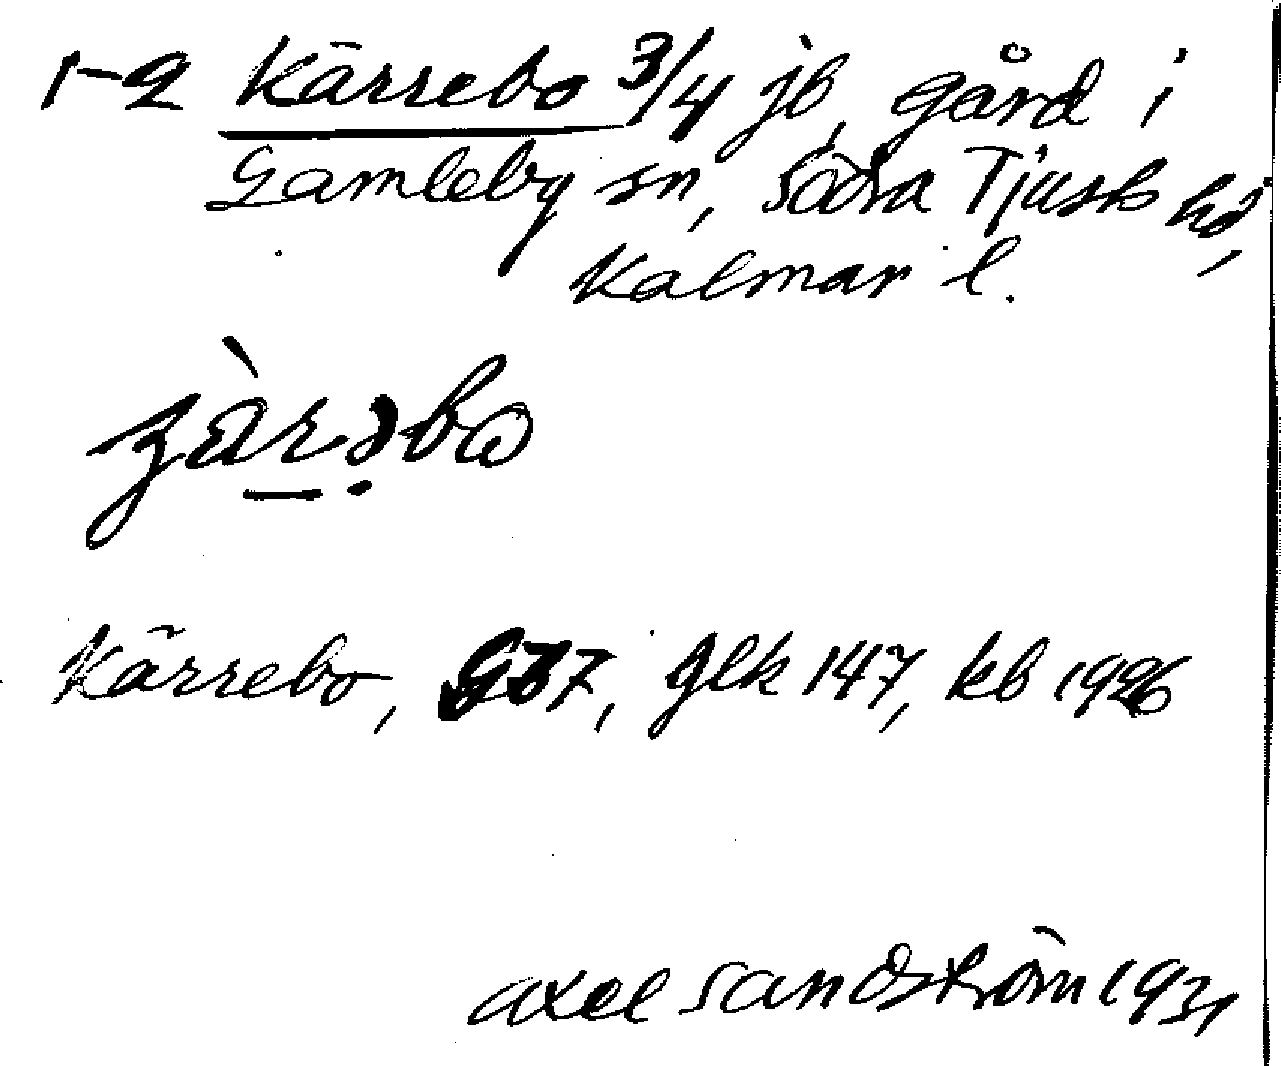 1-2 Kärrebo 3/4 jb, gård i
Gamleby sn, Södra Tjusts hd,
Kalmar l.
Kärrebo, G37, glk 147, kb 1926
Axel Sandström 1931